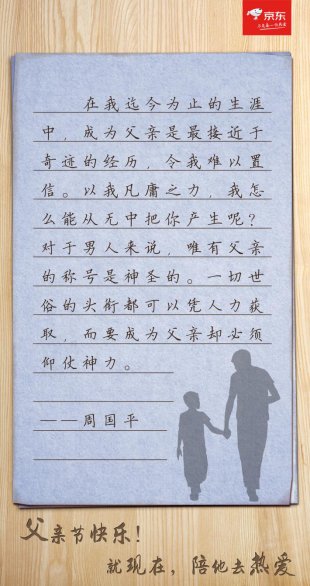 京东
在我迄今为止的生涯
中，成为父亲是最接近于
奇迹的经历，令我难以置
信。以我凡庸之力，我怎
么能从无中把你产生呢？
对于男人来说，唯有父亲
的称号是神圣的。一切世
俗的头衔都可以凭人力获
取，而要成为父亲却必须
仰仗神力。
——周国平
父亲节快乐！
就现在，陪他去热爱